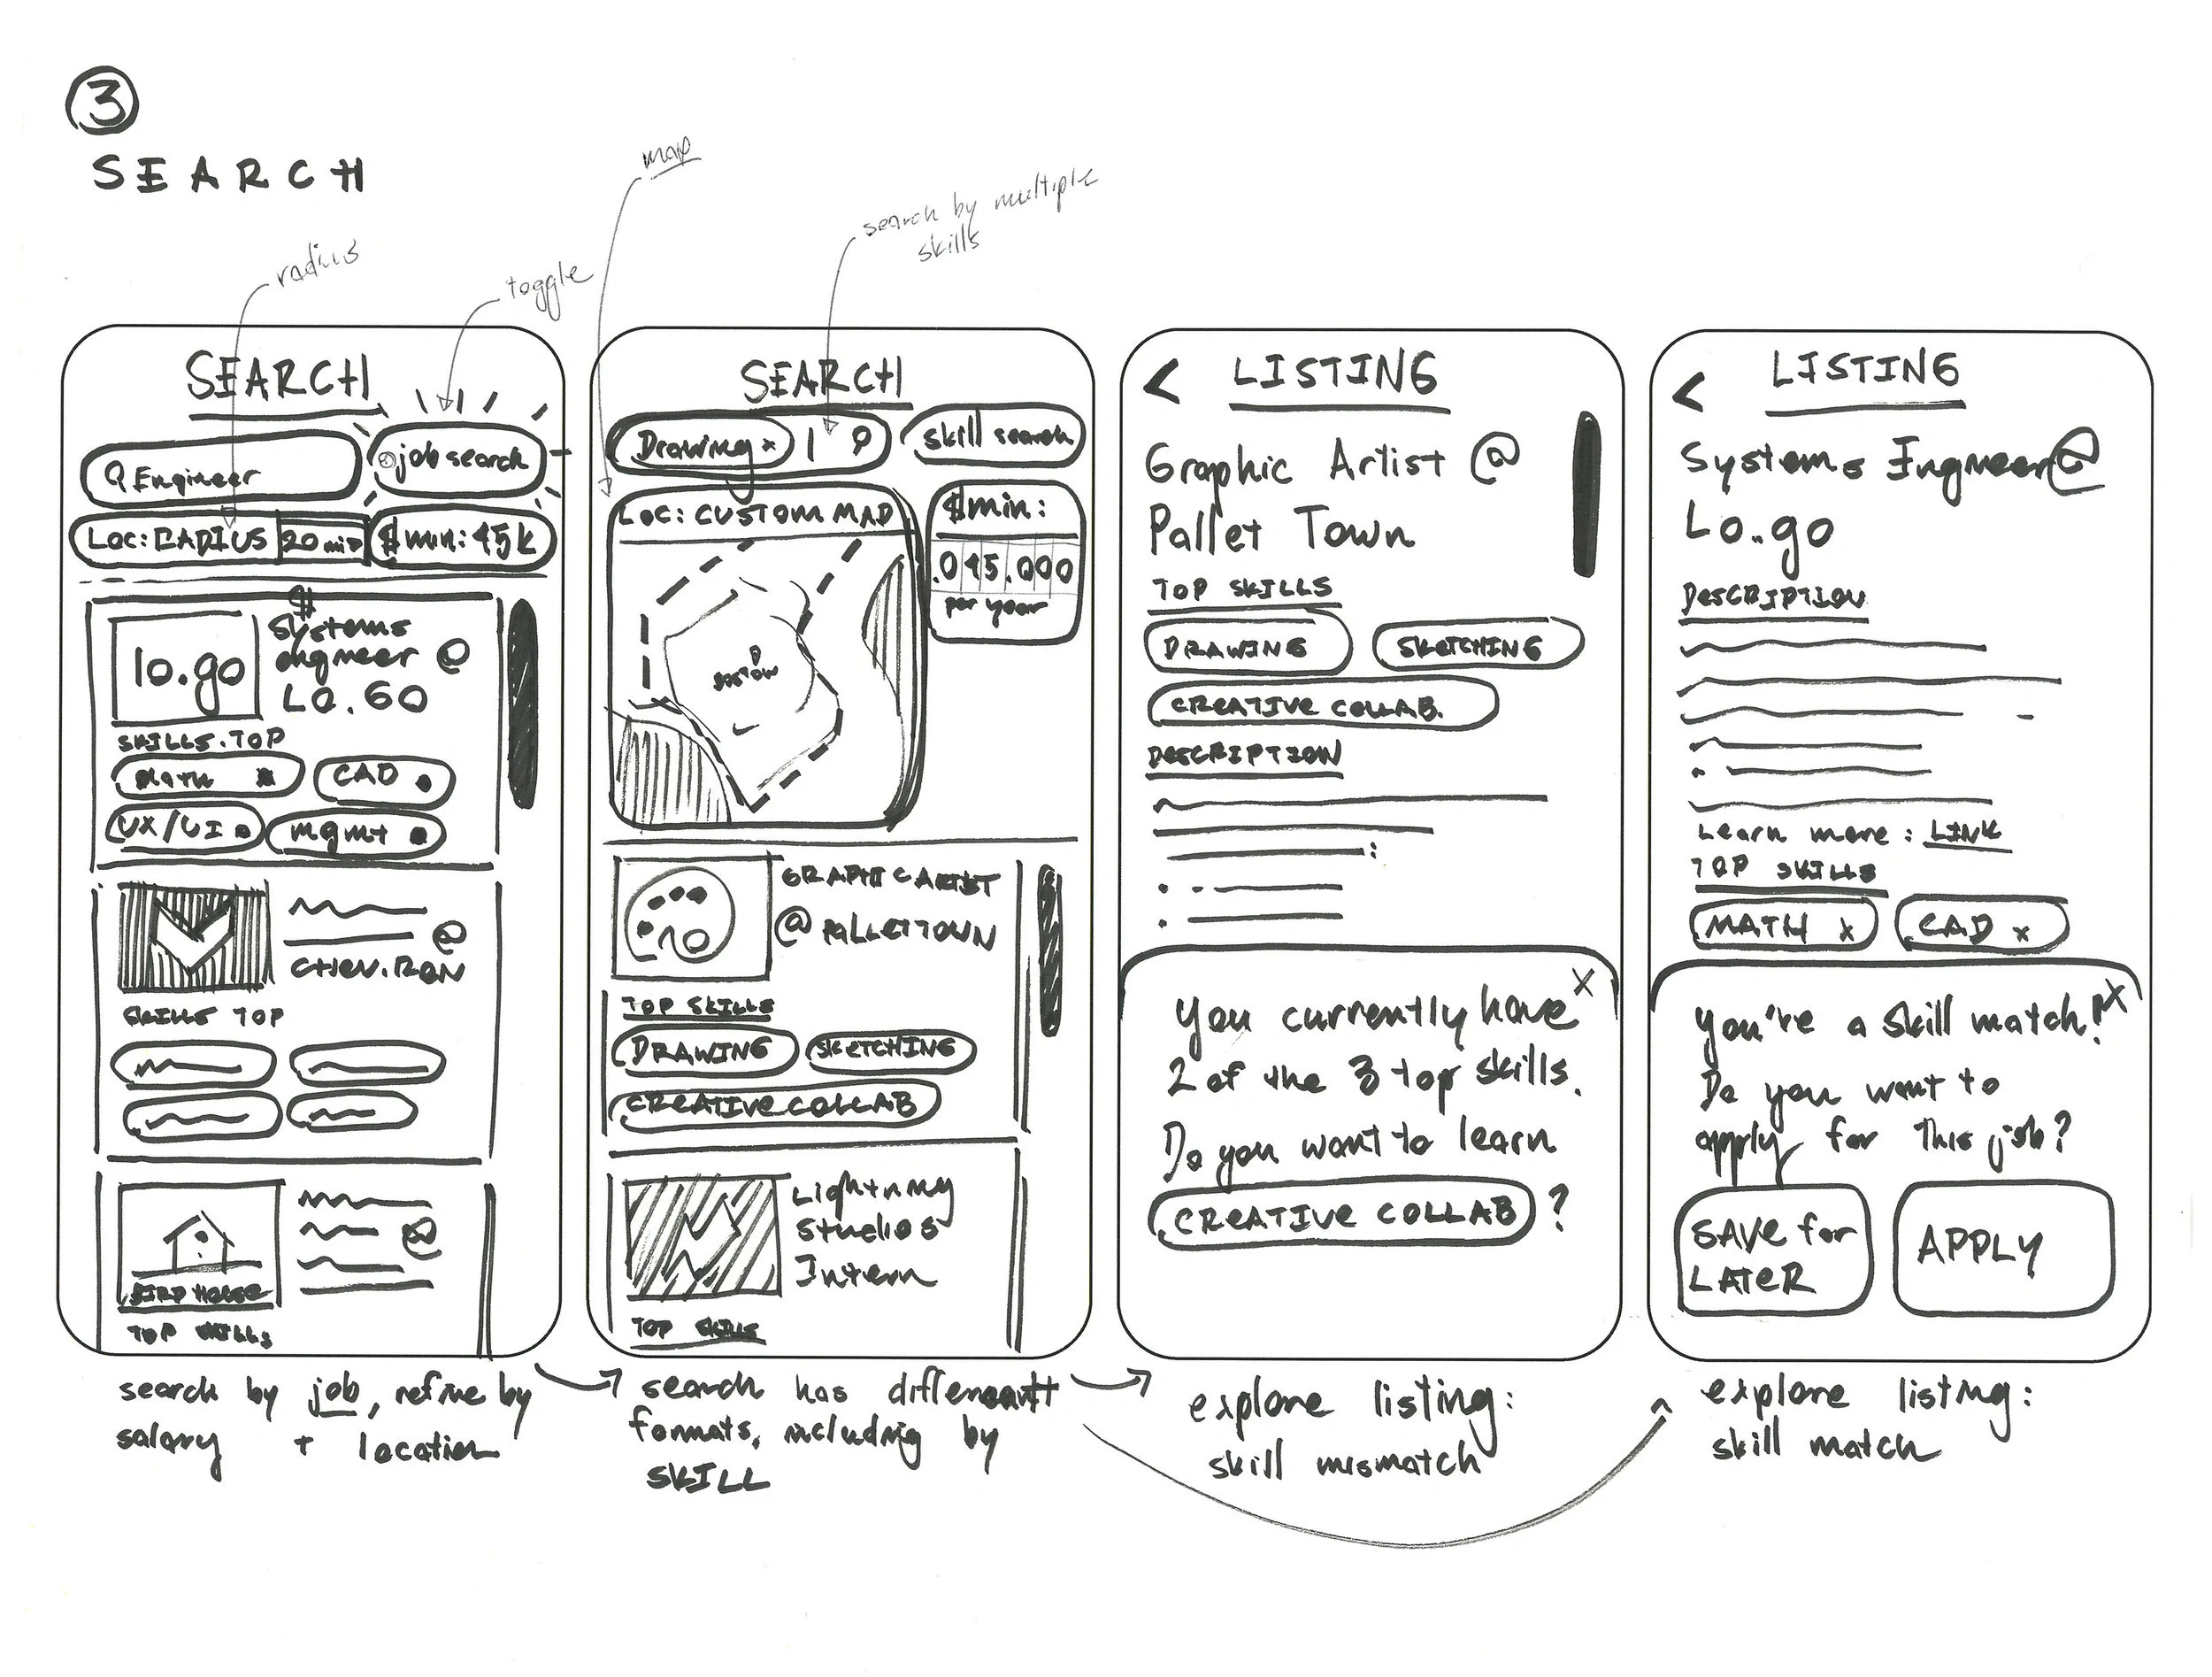 3
SEARCH
radius
toggle
map
search by multiple
skills
SEARCH
Engineer
job search
Loc: RADIUS
20 mi
$ min: 45k
Systems
engineer @
LO.GO
lo.go
SKILLS.TOP
math
CAD
UX/UI
mgmt
@
CHEV.RON
SKILLS TOP
@
BIRD HOUSE
TOP SKILLS
search by job, refine by
salary + location
SEARCH
Drawing x
skill search
LOC: CUSTOM MAP
$min:
045.000
per year
BOSTON
GRAPHIC ARTIST
@ PALLET TOWN
TOP SKILLS
DRAWING
SKETCHING
CREATIVE COLLAB
Lightning
Studios
Intern
TOP SKILLS
search has different
formats, including by
SKILL
<
LISTING
Graphic Artist @
Pallet Town
TOP SKILLS
DRAWING
SKETCHING
CREATIVE COLLAB.
DESCRIPTION
x
You currently have
2 of the 3 top skills.
Do you want to learn
CREATIVE COLLAB ?
explore listing:
skill mismatch
<
LISTING
Systems Engineer @
Lo.go
DESCRIPTION
Learn more: LINK
TOP SKILLS
MATH x
CAD x
x
You're a skill match!
Do you want to
apply for this job?
SAVE for
LATER
APPLY
explore listing:
skill match